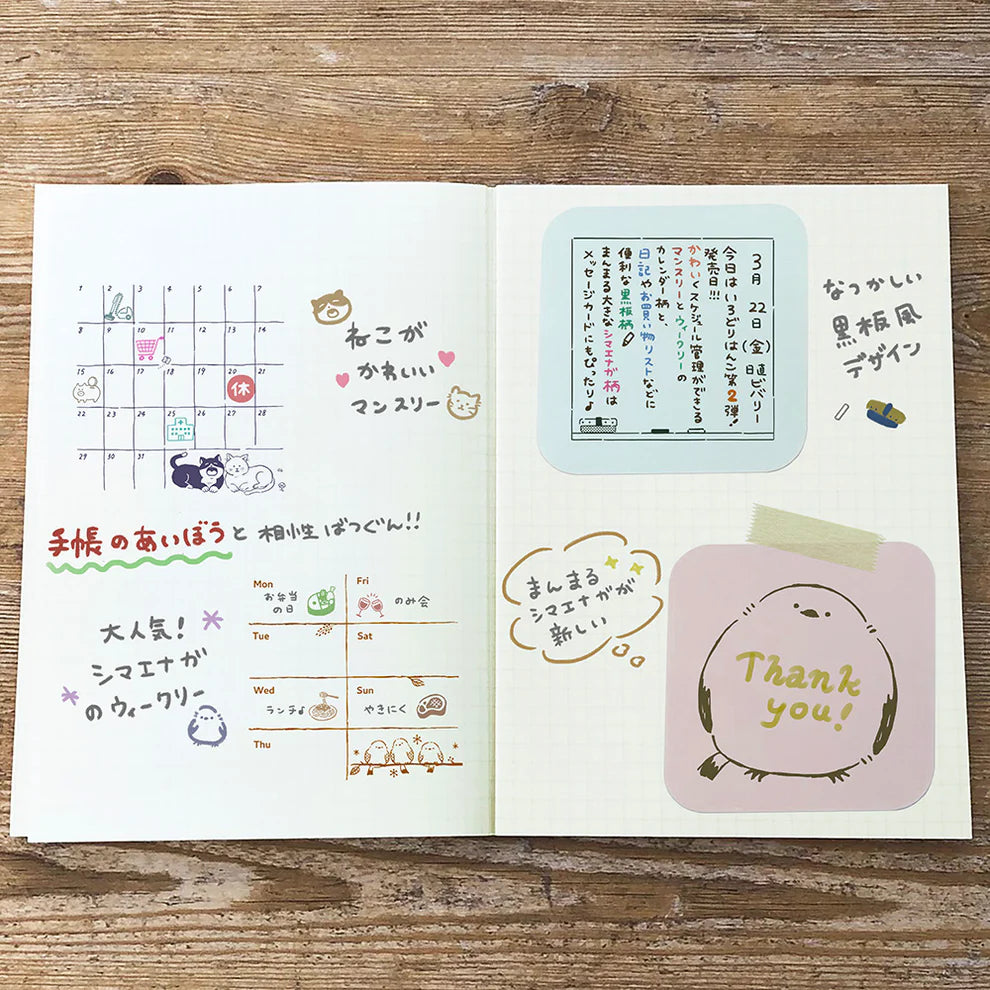 1 2 3 4 5 6 7
8 9 10 11 12 13 14
15 16 17 18 19 20 21
休
22 23 24 25 26 27 28
29 30 31
ねこが
かわいい
マンスリー
手帳のあいぼうと相性ばつぐん!!
大人気!
シマエナガ
のウィークリー
Mon
お弁当
の日
Fri
のみ会
Tue
Sat
Wed
ランチ♪
Sun
やきにく
Thu
3月22日(金)日直ビバリー
今日はいろどりはん第2弾!
発売日!!!
かわいくスケジュール管理ができる
マンスリーとウィークリーの
カレンダー柄と、
日記やお買い物リストなどに
便利な黒板柄
まんまる大きなシマエナガ柄は
メッセージカードにもぴったり♪
なつかしい
黒板風
デザイン
まんまる
シマエナガが
新しい
Thank
you!